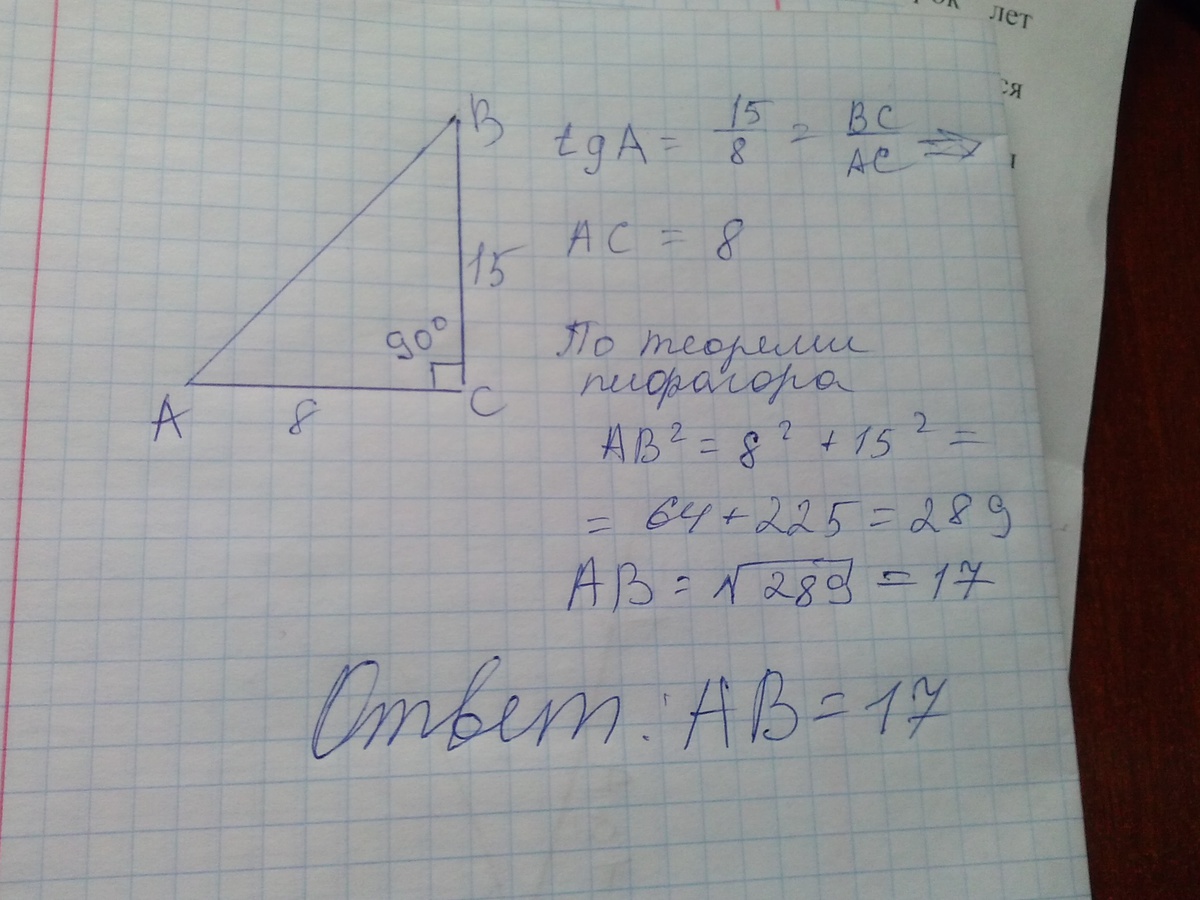 лет
ся
B
tgA = 15/8 = BC/AC ⇒
AC = 8
15
90°
A
8
C
По теореми
пифагора
AB² = 8² + 15² =
= 64 + 225 = 289
AB = √289 = 17
Ответ: AB = 17